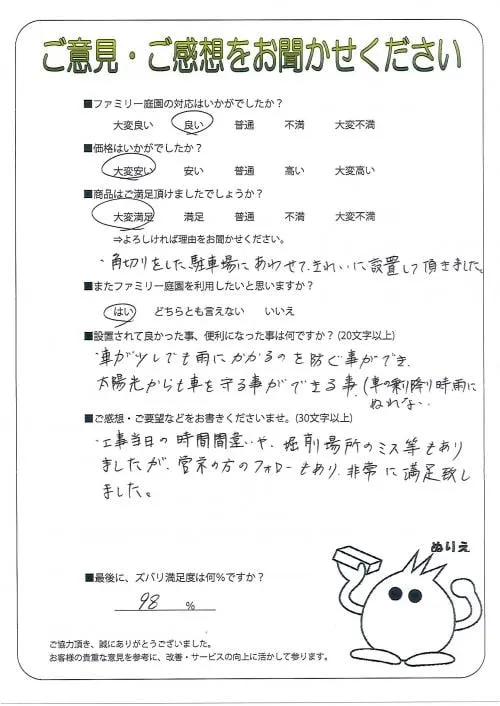 ご意見・ご感想をお聞かせください
■ファミリー庭園の対応はいかがでしたか？
大変良い 良い 普通 不満 大変不満
■価格はいかがでしたか？
大変安い 安い 普通 高い 大変高い
■商品はご満足頂けましたでしょうか？
大変満足 満足 普通 不満 大変不満
⇒よろしければ理由をお聞かせください。
・角切りをした駐車場にあわせて、きれいに設置して頂きました。
■またファミリー庭園を利用したいと思いますか？
はい どちらとも言えない いいえ
■設置されて良かった事、便利になった事は何ですか？(20文字以上)
・車が少しでも雨にかかるのを防ぐ事ができ、
太陽光からも車を守る事ができる事。(車の乗り降り時雨に
ぬれない
■ご感想・ご要望などをお書きくださいませ。(30文字以上)
・工事当日の時間間違いや、堀削場所のミス等もあり
ましたが、営業の方のフォローもあり、非常に満足致し
ました。
ぬりえ
■最後に、ズバリ満足度は何％ですか？
98 %
ご協力頂き、誠にありがとうございました。
お客様の貴重な意見を参考に、改善・サービスの向上に活かして参ります。